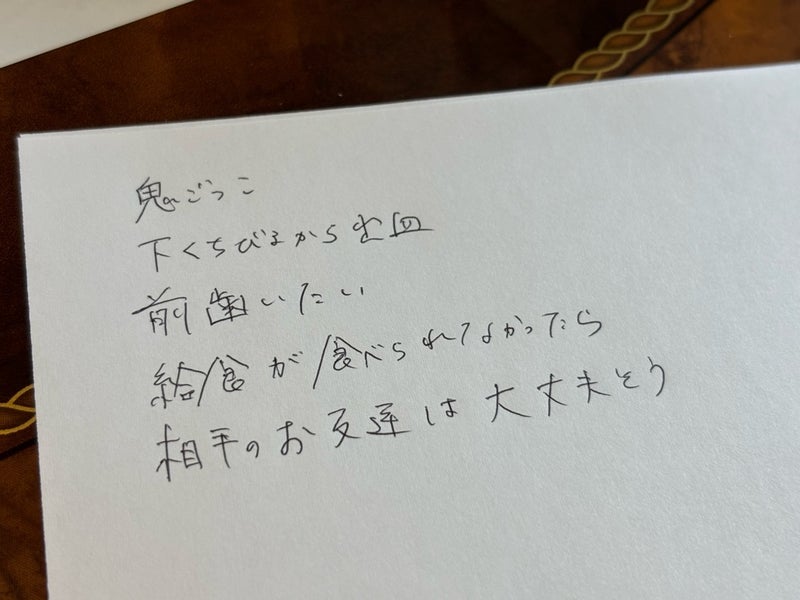 鬼ごっこ
下くちびるから出血
前歯いたい
給食が食べられてなかったら
相手のお友達は大丈夫そう